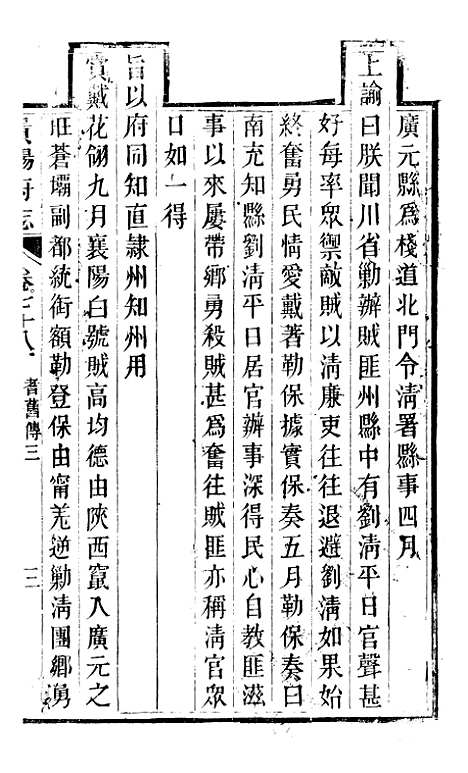 廣元縣爲棧道北門令淸署縣事四月
上諭曰朕聞川省勦辦賊匪州縣中有劉淸平日官聲甚
好每率眾禦敵賊以淸廉吏往往退避劉淸如果始
終奮勇民情愛戴著勒保據實保奏五月勒保奏曰
南充知縣劉淸平日居官辦事深得民心自教匪滋
事以來屢帶鄉勇殺賊甚爲奮往賊匪亦稱淸官眾
口如一得
旨以府同知直隸州知州用
賞戴花翎九月襄陽白號賊高均德由陝西竄入廣元之
旺蒼壩副都統銜額勒登保由甯羌逆勦淸團鄉勇
貴陽府志
卷七十八
耆舊傳三
三